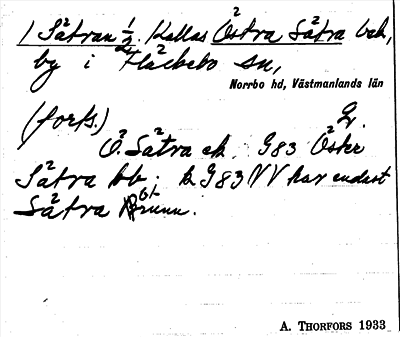 1 Sätran 1/2. Kallas Östra Sätra bak,
by i Fläckebo sn,
Norrbo hd, Västmanlands län
(forts.) Gr.
Ö. Sätra ek. G83 Öster
Sätra bb. k G83 NV har endast
Sätra Brunn.
A. THORFORS 1933